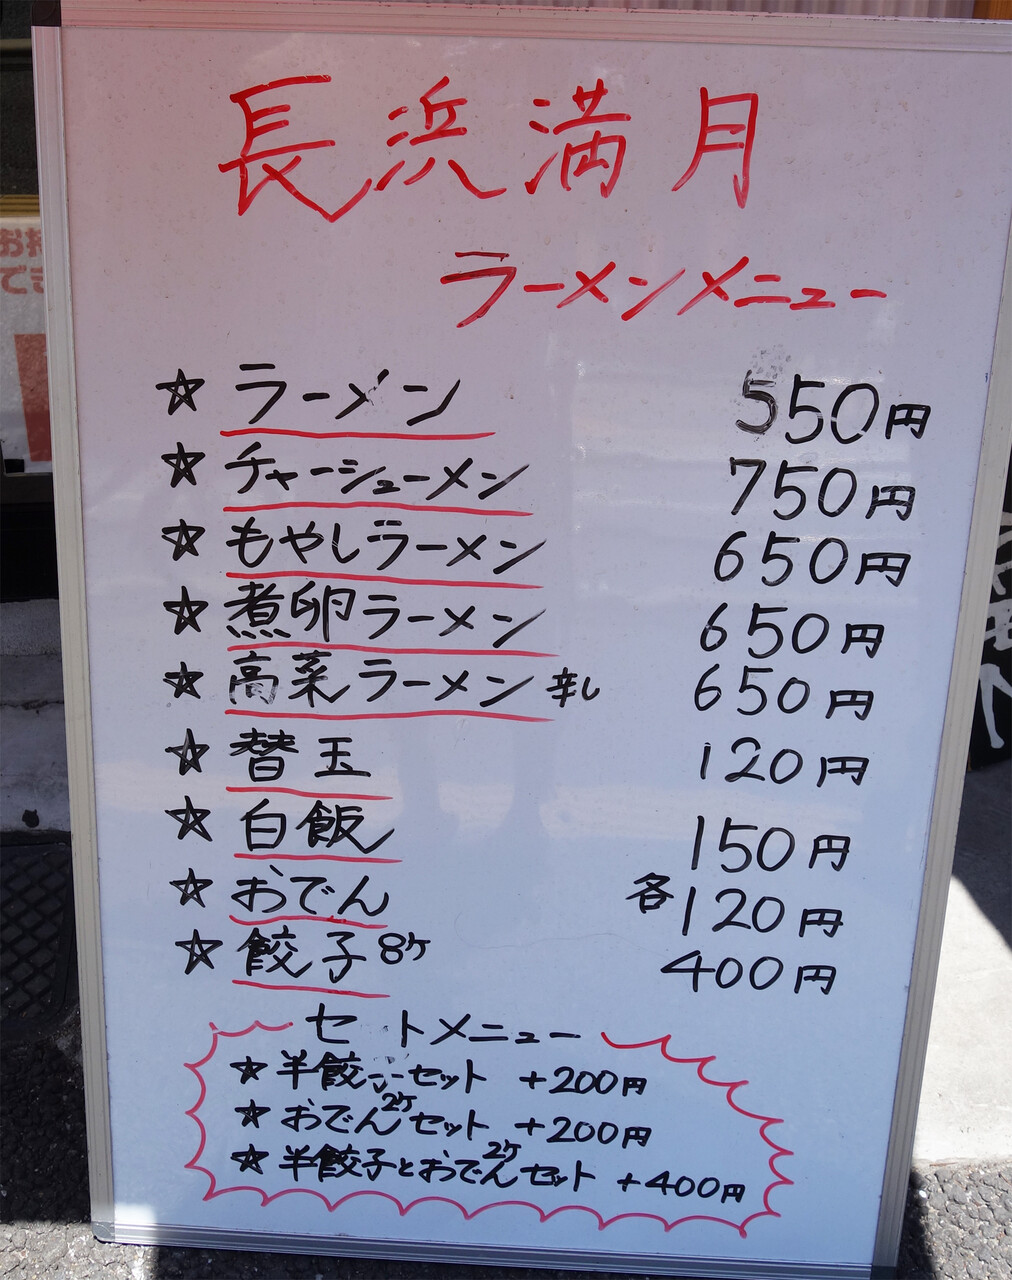 長浜満月
ラーメンメニュー
☆ ラーメン 550円
☆ チャーシューメン 750円
☆ もやしラーメン 650円
☆ 煮卵ラーメン 650円
☆ 高菜ラーメン 辛し 650円
☆ 替玉 120円
☆ 白飯 150円
☆ おでん 各120円
☆ 餃子 8ケ 400円
セ トメニュー
☆ 半餃子セット +200円
☆ おでん2ケセット +200円
☆ 半餃子とおでん2ケセット +400円
お持
でき